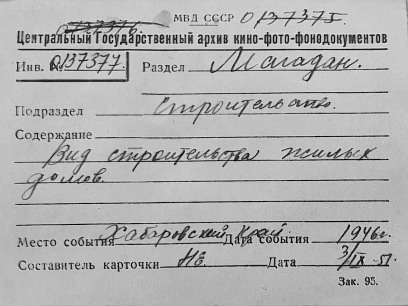 МВД СССР 0137375
0137376.
Центральный Государственный архив кино-фото-фонодокументов
Инв. № 0137377. Раздел Магадан.
Подраздел Строительство.
Содержание
Вид строительства жилых
домов.
Место события Хабаровский Край Дата события 1946г.
Составитель карточки НВ. Дата 3/IX-51.
Зак. 95.